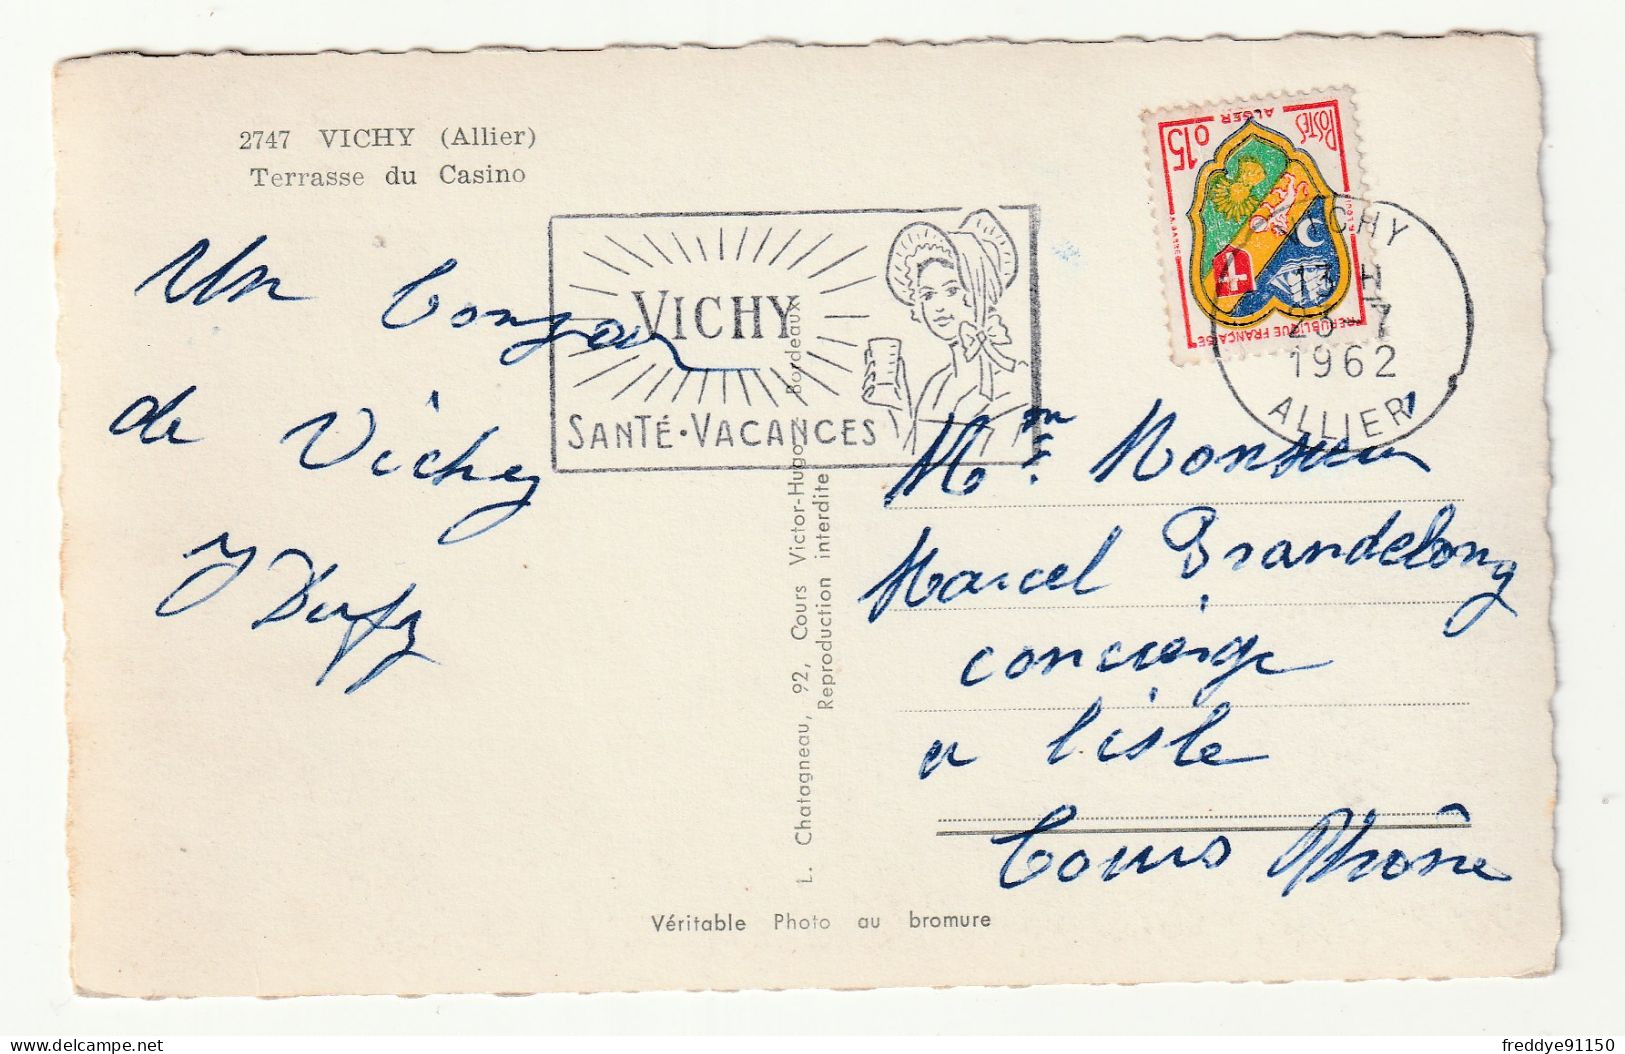 2747 VICHY (Allier)
Terrasse du Casino
Un bonjour
de Vichy
J Dufy
VICHY
SANTÉ·VACANCES
L. Chatagneau, 92, Cours Victor-Hugo Bordeaux
Reproduction interdite
Véritable Photo au bromure
POSTES
0,15
ALGER
REPUBLIQUE FRANÇAISE
VICHY
13 H
7
1962
ALLIER
Mme Monsieur
Marcel Grandelong
concierge
a l'isle
Cours Rhône
freddye91150